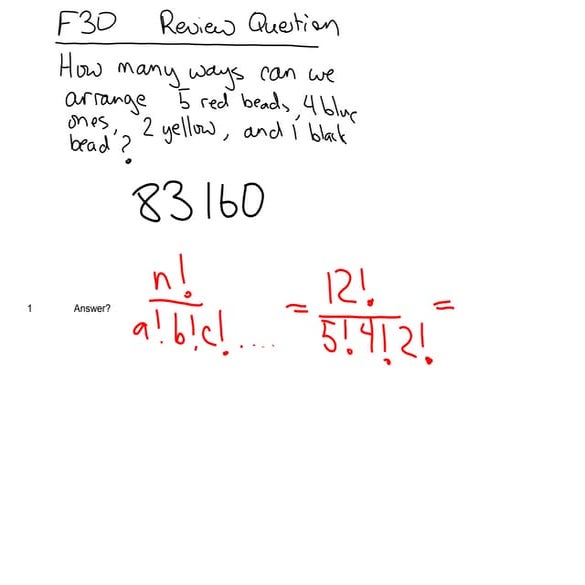 F30 Review Question
How many ways can we
arrange 5 red beads, 4 blue
ones, 2 yellow, and 1 black
bead?
83160
n!/a!b!c!.... = 12!/5!4!2! =
1 Answer?